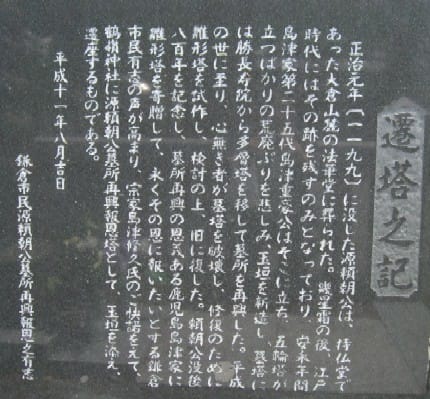 遷塔之記
正治元年〔一一九九〕に没した源頼朝公は、持仏堂で
あった大倉山麓の法華堂に葬られた。幾星霜の後、江戸
時代にはその跡を残すのみとなっており、安永年間
島津家第二十五代島津重豪公はそこに立ち、五輪塔が
立つばかりの荒廃ぶりを悲しみ玉垣を新造し、墓塔に
は勝長寿院から多層塔を移して墓所を再興した。平成
の世に至り、心無き者が墓塔を破壊し、修復のために
雛形塔を試作し、検討の上、旧に復した。頼朝公没後
八百年を記念し、墓所再興の恩義ある鹿児島島津家に
雛形塔を寄贈して、永くその恩に報いたいとする鎌倉
市民有志の声が高まり、宗家島津修久氏のご快諾をえて、
鶴嶺神社に源頼朝公墓所再興報恩塔として、玉垣を添え、
遷座するものである。
平成十一年八月吉日
鎌倉市民源頼朝公墓所再興報恩之有志